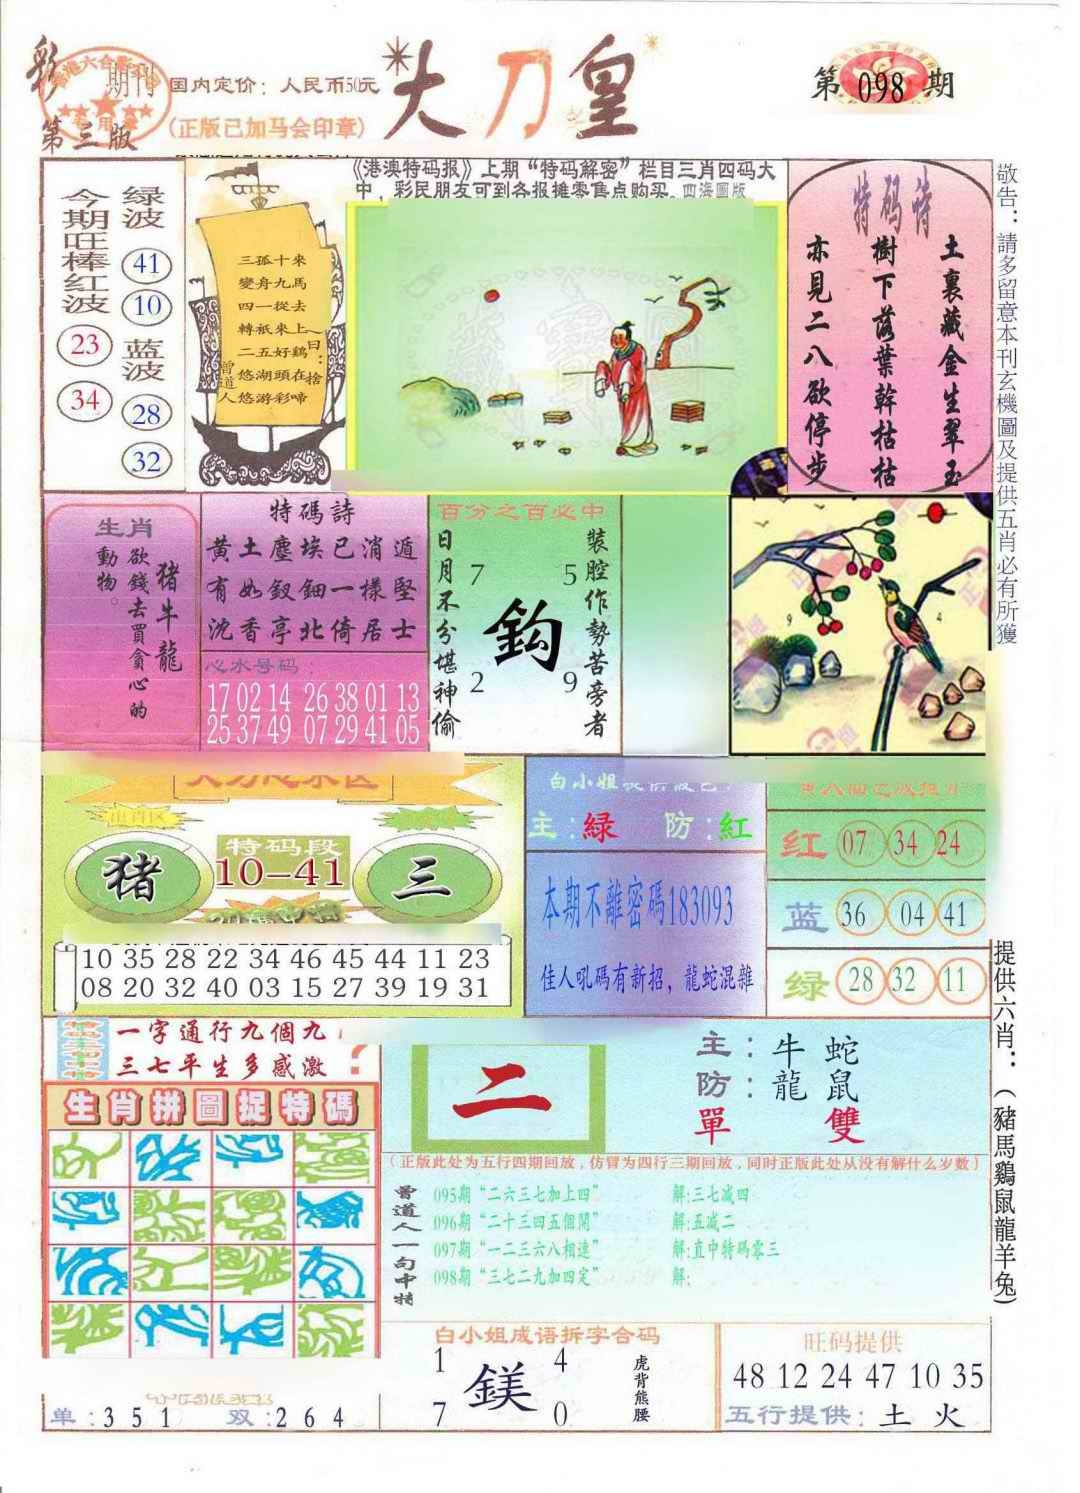 彩
期刊
第三版
国内定价：人民币50元
(正版已加马会印章)
大刀皇
第 098 期
《港澳特码报》上期“特码解密”栏目三肖四码大
中，彩民朋友可到各报摊零售点购买。四海圖版
今期旺棒红波
23
34
绿波
41
10
蓝波
28
32
三孤十来
變舟九馬
四一從去
轉祇來上
二五好鷄
悠湖頭在
悠游彩啼
曾道人
曰：捨
特码诗
土裏藏金生翠玉
樹下落葉幹枯枯
亦見二八欲停步
敬告：請多留意本刊玄機圖及提供五肖必有所獲
生肖
猪牛龍
欲錢去買貪心的
動物。
特碼詩
黃土塵埃已消遁
有如釵鈿一樣堅
沈香亭北倚居士
心水号码：
17 02 14 26 38 01 13
25 37 49 07 29 41 05
百分之百必中
日月不分堪神偷
7 5
鈎
2 9
裝腔作勢苦旁者
9 4
猪
特码段
10-41
三
10 35 28 22 34 46 45 44 11 23
08 20 32 40 03 15 27 39 19 31
白小姐
主：緑 防：紅
本期不離密碼183093
佳人吼碼有新招，龍蛇混雜
红 07 34 24
蓝 36 04 41
绿 28 32 11
一字通行九個九
三七平生多感激
?
生肖拼圖捉特碼
二
主：牛 蛇
防：龍 鼠
單 雙
提供六肖：（豬馬鷄鼠龍羊兔）
(正版此处为五行四期回放，仿冒为四行三期回放，同时正版此处从没有解什么岁数)
曾道人一句中特
095期“二六三七加上四” 解:三七减四
096期“二十三四五個開” 解:五减二
097期“一二三六八相連” 解:直中特碼零三
098期“三七二九加四定” 解:
白小姐成语拆字合码
1 4
鎂
7 0
虎背熊腰
旺码提供
48 12 24 47 10 35
五行提供：土 火
单：3 5 1 双：2 6 4